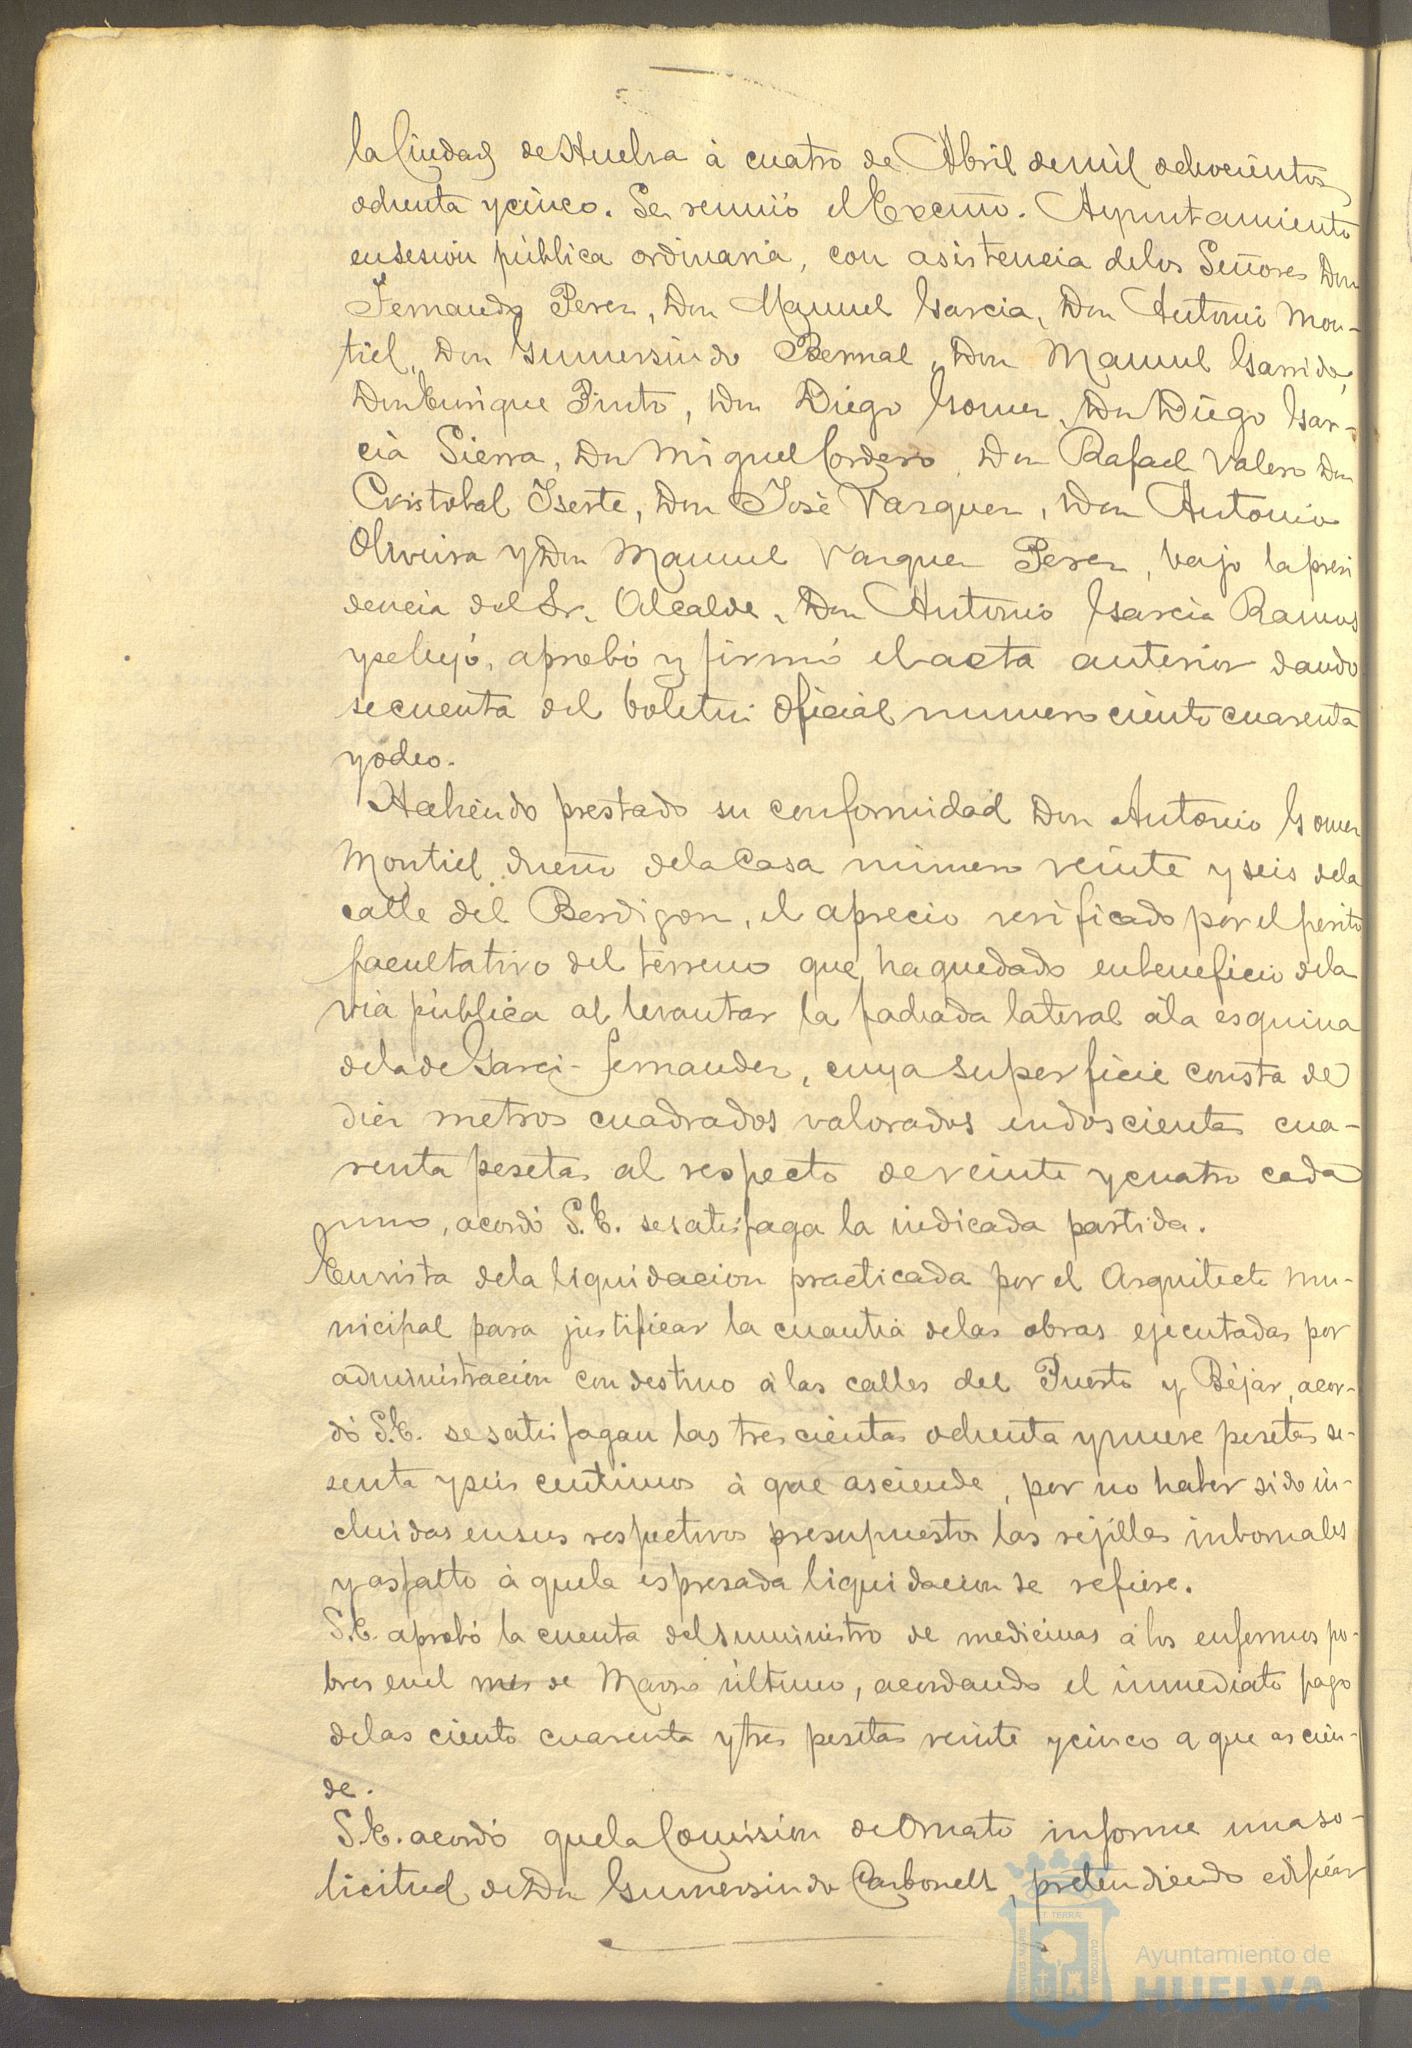 la Ciudad de Huelva á cuatro de Abril de mil ochocientos
ochenta y cinco. Se reunió el Excmo. Ayuntamiento
en sesion pública ordinaria, con asistencia de los Señores Don
Fernando Perez, Don Manuel Garcia, Don Antonio Mon-
tiel, Don Gumersindo Bernal, Don Manuel Garrido,
Don Enrique Pinto, Don Diego Gomez, Don Diego Gar-
cia Sierra, Don Miguel Cordero, Don Rafael Valero Don
Cristobal Iserte, Don José Vazquez, Don Antonio
Oliveira y Don Manuel Vazquez Perez, bajo la presi
dencia del Sr. Alcalde, Don Antonio Garcia Ramos
y se leyó, aprobó y firmó el acta anterior dando
se cuenta del boletin oficial numero ciento cuarenta
y ocho.
Habiendo prestado su conformidad Don Antonio Gomez
Montiel dueño de la Casa numero veinte y seis de la
calle del Berdigon, el aprecio verificado por el perito
facultativo del terreno que ha quedado en beneficio de la
via pública al levantar la fachada lateral á la esquina
de la de Garci-Fernandez, cuya superficie consta de
diez metros cuadrados valorados en doscientas cua-
renta pesetas al respecto de veinte y cuatro cada
uno, acordó S.E. se satisfaga la indicada partida.
En vista de la liquidacion practicada por el Arquitecto mu-
nicipal para justificar la cuantia de las obras ejecutadas por
administracion con destino á las calles del Puerto y Béjar, acor-
dó S.E. se satisfagan las trescientas ochenta y nueve pesetas se-
senta y seis centimos á que asciende, por no haber sido in-
cluidas en sus respectivos presupuestos las rejillas inbornales
y asfalto á que la espresada liquidacion se refiere.
S.E. aprobó la cuenta del suministro de medicinas á los enfermos po-
bres en el mes de Marzo último, acordando el inmediato pago
de las ciento cuarenta y tres pesetas veinte y cinco a que ascien-
de.
S.E. acordó que la Comision de Ornato informe una so-
licitud de Don Gumersindo Carbonell, pretendiendo edificar
Ayuntamiento de
HUELVA